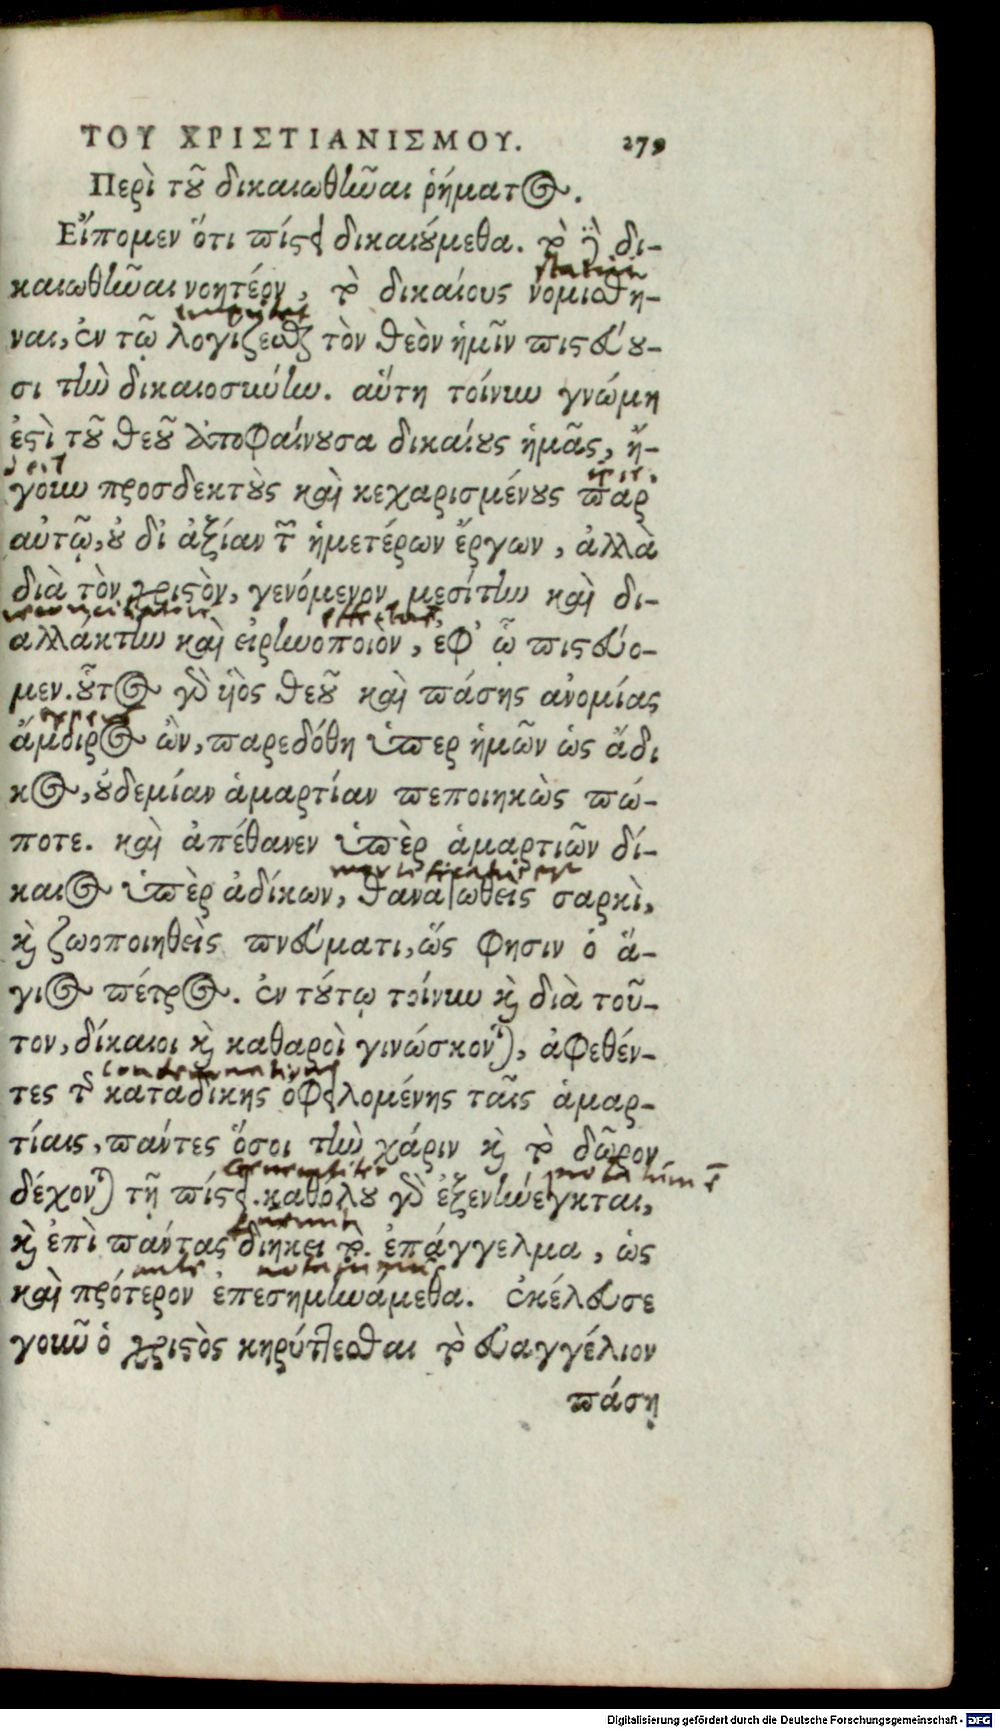 ΤΟΥ ΧΡΙΣΤΙΑΝΙΣΜΟΥ. 279
Περὶ τοῦ δικαιωθῆναι ῥήματος.
Εἴπομεν ὅτι πίστει δικαιούμεθα. τὸ δὲ δι-
καιωθῆναι νοητέον, τὸ δικαίους νομισθῆ-
ναι, ἐν τῷ λογίζεσθαι τὸν θεὸν ἡμῖν πιστεύου-
σι τὴν δικαιοσύνην. αὕτη τοίνυν γνώμη
ἐστὶ τοῦ θεοῦ ἀποφαίνουσα δικαίους ἡμᾶς, ἤ-
γουν προσδεκτοὺς καὶ κεχαρισμένους παρ
αὐτῷ, οὐ δι ἀξίαν τῶν ἡμετέρων ἔργων, ἀλλὰ
διὰ τὸν χριστὸν, γενόμενον μεσίτην καὶ δι-
αλλάκτην καὶ εἰρηνοποιὸν, ἐφ' ᾧ πιστεύο-
μεν. οὗτος γὰρ υἱὸς θεοῦ καὶ πάσης ἀνομίας
ἄμοιρος ὢν, παρεδόθη ὑπερ ἡμῶν ὡς ἄδι
κος, οὐδεμίαν ἁμαρτίαν πεποιηκὼς πώ-
ποτε. καὶ ἀπέθανεν ὑπὲρ ἁμαρτιῶν δί-
καιος ὑπὲρ ἀδίκων, θανατωθεὶς σαρκὶ,
καὶ ζωοποιηθεὶς πνεύματι, ὥς φησιν ὁ ἅ-
γιος πέτρος. ἐν τούτῳ τοίνυν καὶ διὰ τοῦ-
τον, δίκαιοι καὶ καθαροὶ γινώσκονται, ἀφεθέν-
τες τῆς καταδίκης ὀφειλομένης ταῖς ἁμαρ-
τίαις, πάντες ὅσοι τὴν χάριν καὶ τὸ δῶρον
δέχονται τῇ πίστει. καθόλου γὰρ ἐξενήνεγκται,
καὶ ἐπὶ πάντας διήκει τὸ ἐπάγγελμα, ὡς
καὶ πρότερον ἐπεσημηνάμεθα. ἐκέλευσε
γοῦν ὁ χριστὸς κηρύττεσθαι τὸ εὐαγγέλιον
πάσῃ
Digitalisierung gefördert durch die Deutsche Forschungsgemeinschaft - DFG